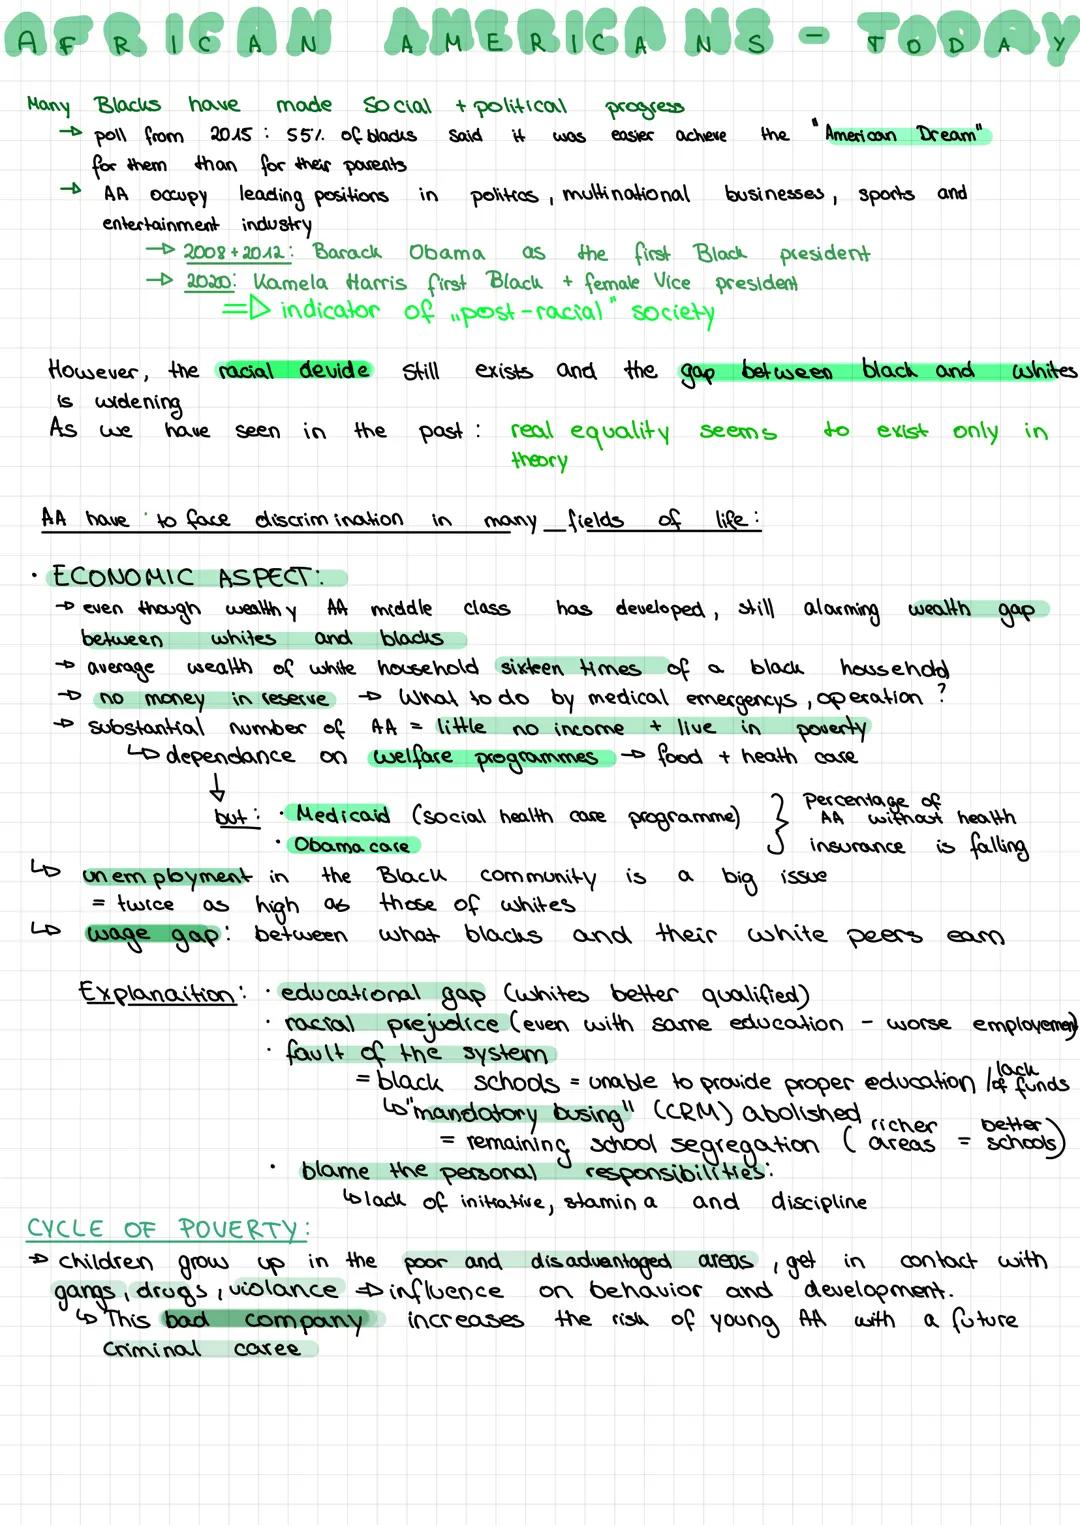 AFRICAN AMERICANS - TODAY
Many Blacks have made social + political progress
→ poll from 2015: 55% of blacks said it was easier achieve the "American Dream"
for them than for their parents
→ AA occupy leading positions in politics, multinational businesses, sports and
entertainment industry
→ 2008+2012: Barack Obama as the first Black president
→ 2020: Kamela Harris first Black + female Vice president
=> indicator of „post-racial" society
However, the racial devide still exists and the gap between black and whites
is widening
As we have seen in the past: real equality seems to exist only in
theory
AA have to face discrimination in many fields of life:
· ECONOMIC ASPECT:
→ even though wealthy AA middle class has developed, still alarming wealth gap
between whites and blacks
→ average wealth of white household sixteen times of a black household
→ no money in reserve → What to do by medical emergencys, operation?
→ substantial number of AA = little no income + live in poverty
↳ dependance on welfare programmes → food + heath care
↓
but: · Medicaid (social health care programme) } Percentage of
AA without health
· Obama care insurance is falling
↳ unemployment in the Black community is a big issue
= twice as high as those of whites
↳ wage gap: between what blacks and their white peers earn
Explanaition: · educational gap (whites better qualified)
· racial prejudice (even with same education - worse employement)
· fault of the system
= black schools = unable to provide proper education / lack of funds
↳ "mandatory busing" (CRM) abolished
= remaining school segregation (richer areas = better schools)
· blame the personal responsibilities:
↳ lack of initiative, stamina and discipline
CYCLE OF POVERTY:
→ children grow up in the poor and disadvantaged areas, get in contact with
gangs, drugs, violance => influence on behavior and development.
↳ This bad company increases the risk of young AA with a future
criminal caree